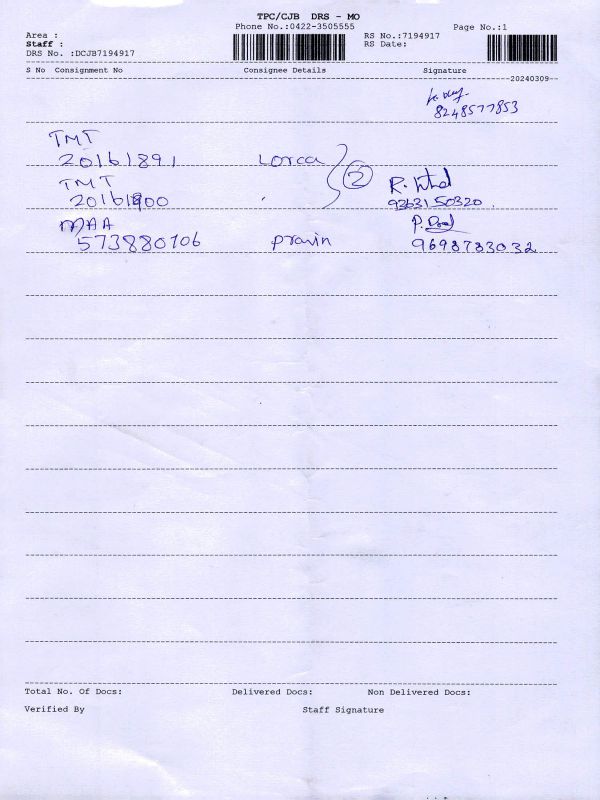 TPC/CJB DRS - MO
Phone No.:0422-3505555
Page No.:1
Area :
RS No.:7194917
Staff :
RS Date:
DRS No. :DCJB7194917
S No Consignment No Consignee Details Signature
20240309
8248577853
TMT
20161891 Lorca
TMT 2
20161900 R.
9363150320
MAA P.
573880706 pravin 9698783032
Total No. Of Docs: Delivered Docs: Non Delivered Docs:
Verified By Staff Signature